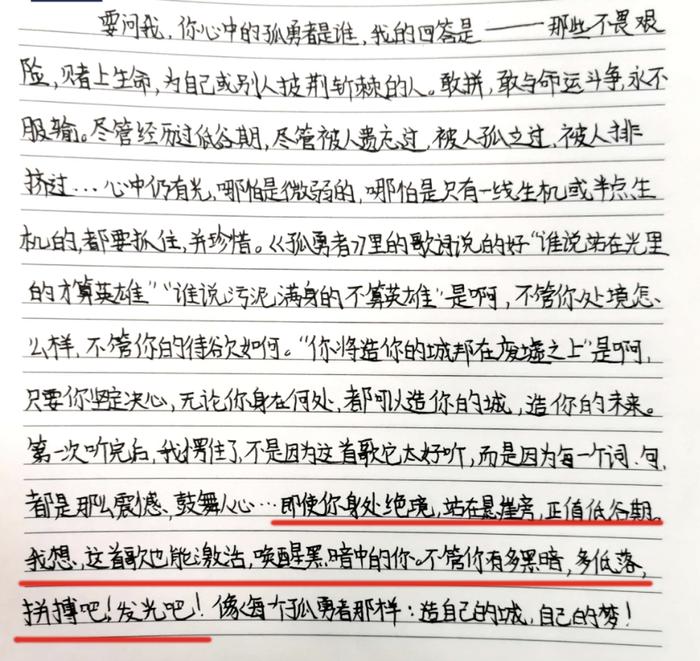 要问我，你心中的孤勇者是谁，我的回答是——那些不畏艰
险，赌上生命，为自己或别人披荆斩棘的人。敢拼，敢与命运斗争，永不
服输。尽管经历过低谷期，尽管被人遗忘过，被人孤立过，被人排
挤过…心中仍有光，哪怕是微弱的，哪怕是只有一线生机或半点生
机的，都要抓住，并珍惜。《孤勇者》里的歌词说的好“谁说站在光里
的才算英雄”“谁说污泥满身的不算英雄”是啊，不管你处境怎
么样，不管你的待谷欠如何。“你将造你的城邦在废墟之上”是啊，
只要你坚定决心，无论你身在何处，都可以造你的城，造你的未来。
第一次听完后，我愣住了，不是因为这首歌它太好听，而是因为每一个词、句，
都是那么震撼、鼓舞人心…即使你身处绝境，站在悬崖旁，正值低谷期，
我想，这首歌也能激活，唤醒黑暗中的你。不管你有多黑暗，多低落，
拼搏吧！发光吧！像每个孤勇者那样：造自己的城，自己的梦！